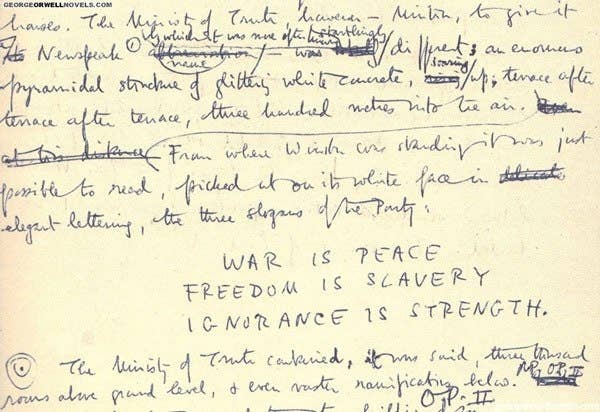 GEORGEORWELLNOVELS.COM
houses. The Ministry of Truth, however – Minitrue, to give it
its Newspeak name by which it was more often known – was startlingly different; an enormous
pyramidal structure of glittering white concrete, soaring up, terrace after
terrace after terrace, three hundred metres into the air. Even
at this distance From where Winston was standing it was just
possible to read, picked out on its white face in delicate
elegant lettering, the three slogans of the Party:
WAR IS PEACE
FREEDOM IS SLAVERY
IGNORANCE IS STRENGTH.
The Ministry of Truth contained, it was said, three thousand
rooms above ground level, & even vaster ramifications below.
OP. II